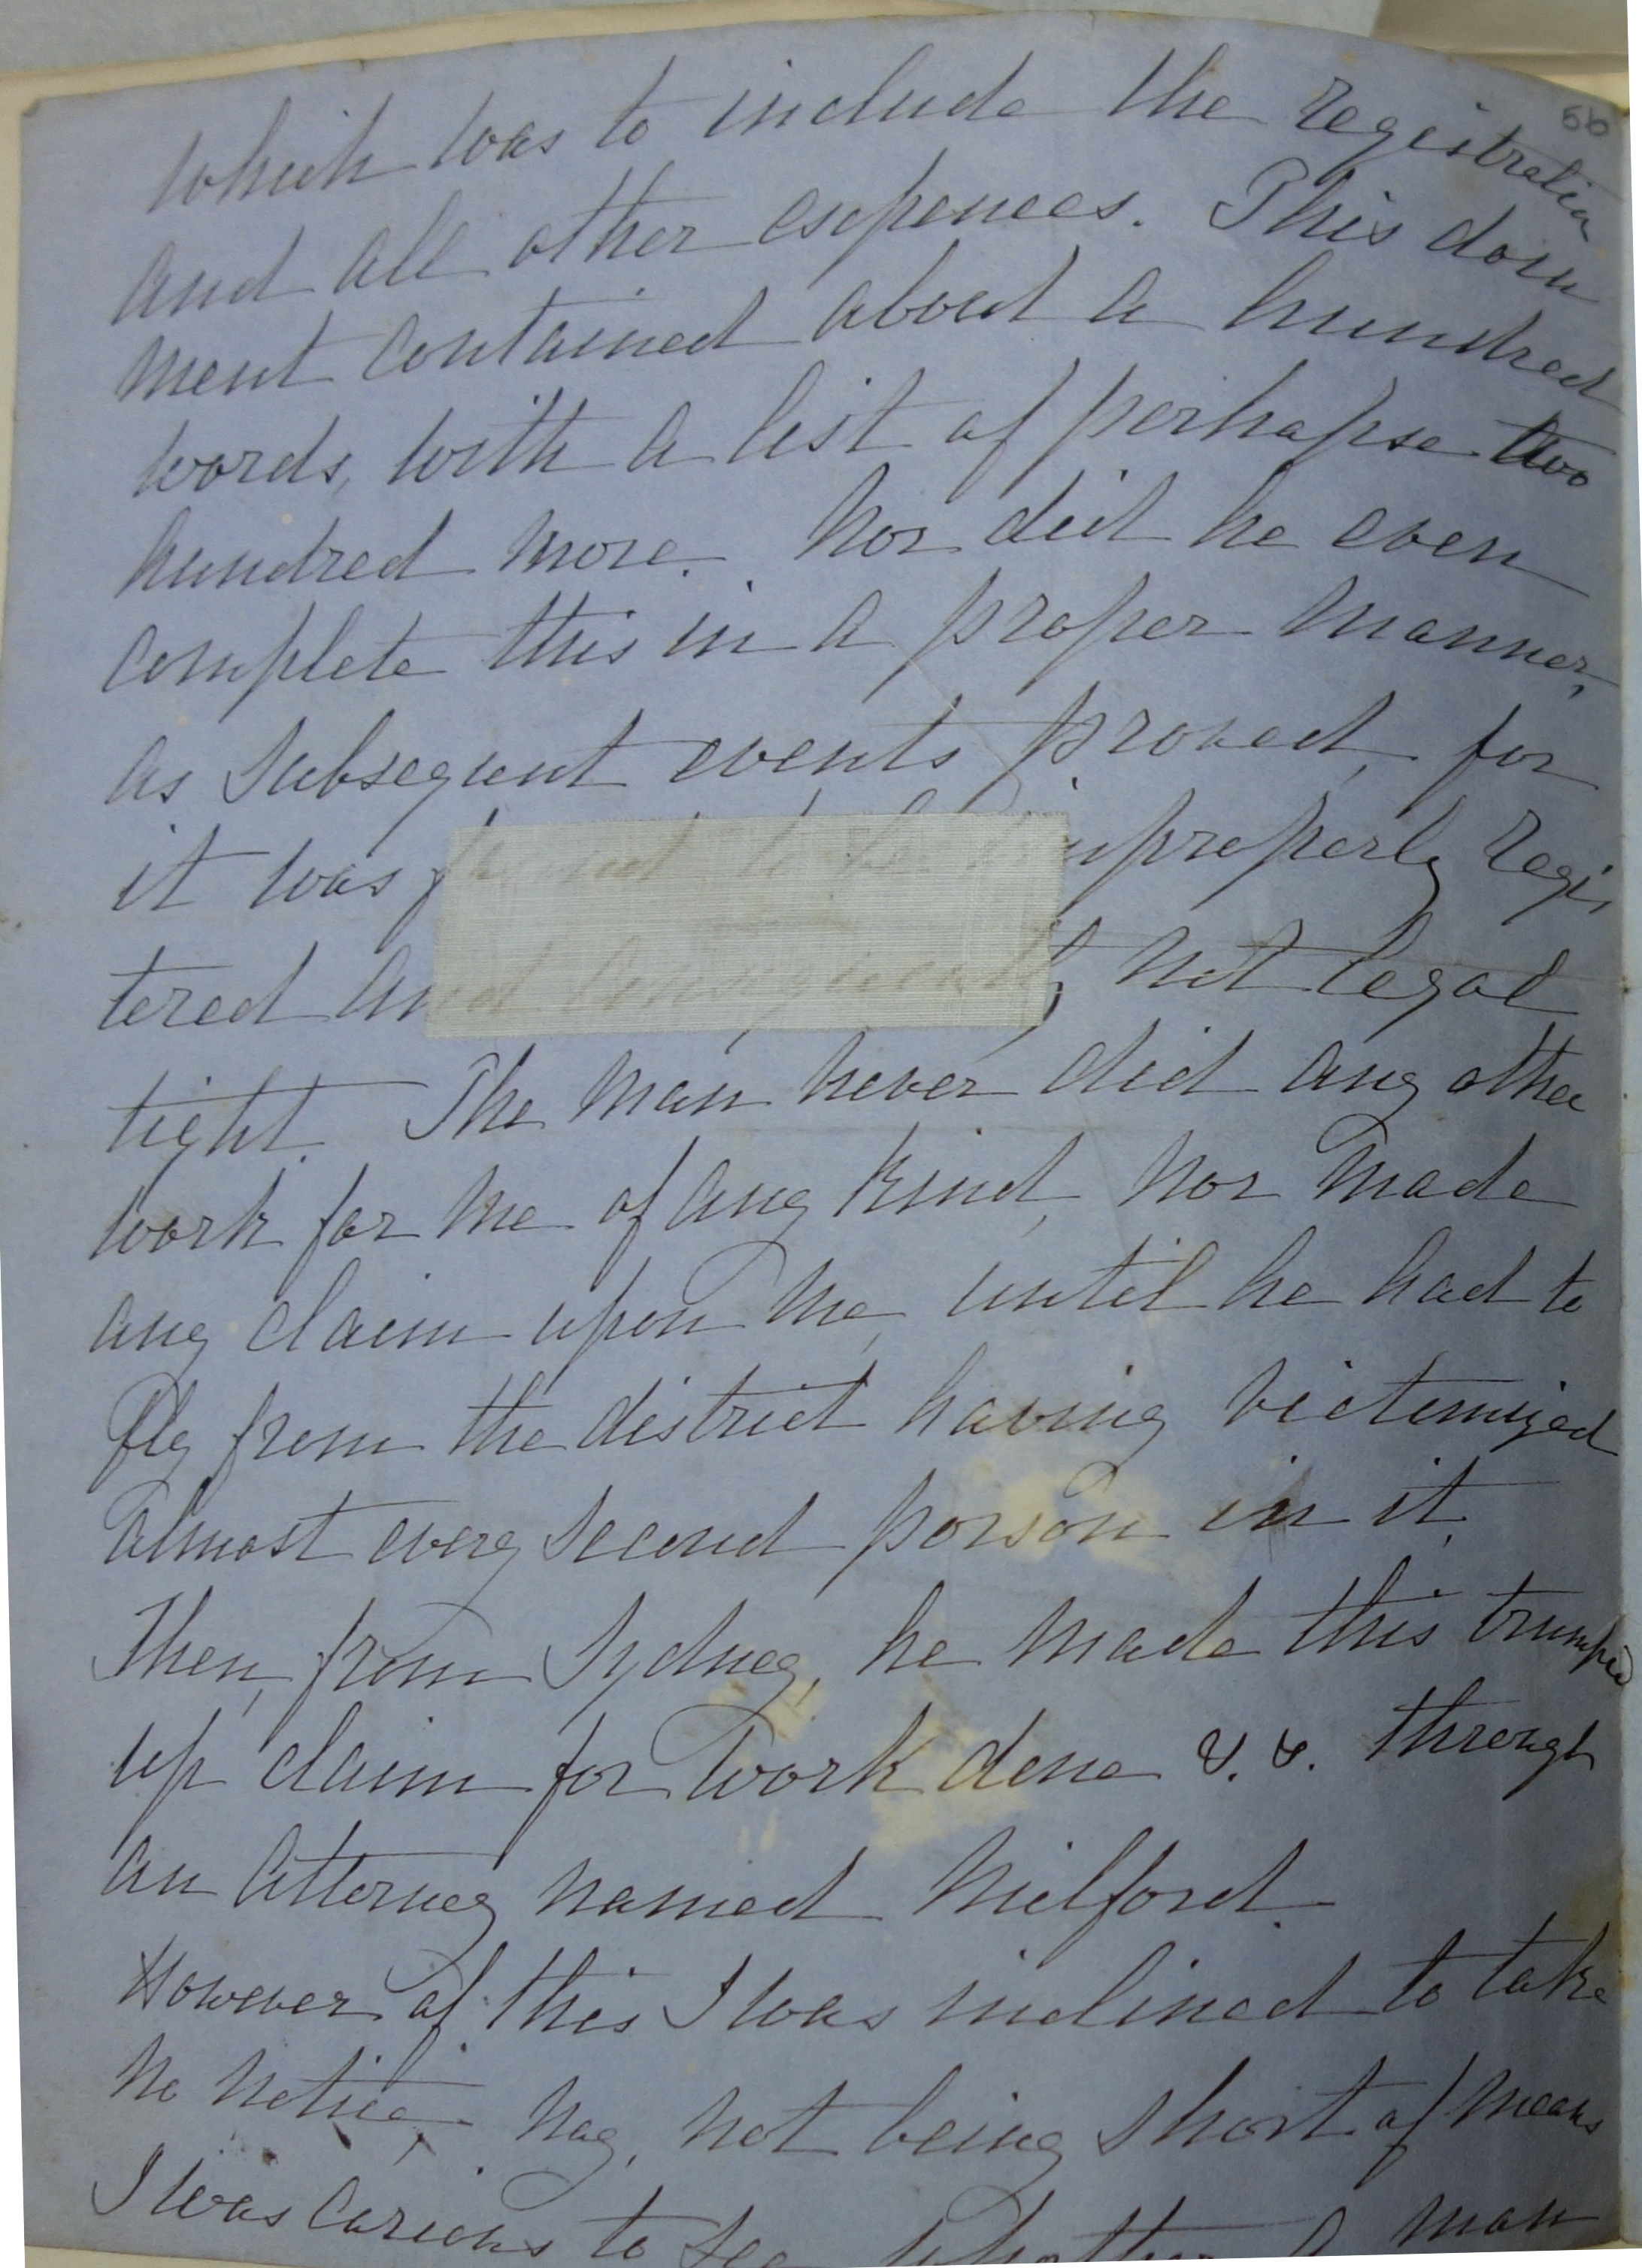 56
which was to include the registration
and all other expences. This docu
ment contained about a hundred
words, with a list of perhapse two
hundred more. Nor did he even
complete this in a proper manner,
as subsequent events proved, for
it was found to be improperly regis
tered and consequently not legal
tight. The man never did any other
work for me of any kind, nor made
any claim upon me, until he had to
fly from the district having victemized
almost every second person in it.
Then, from Sydney, he made this trumped
up claim for work done &. &. through
an Attorney named Milford.
However of this I was inclined to take
no notice, nay, not being short of means
I was carious to see whether a man